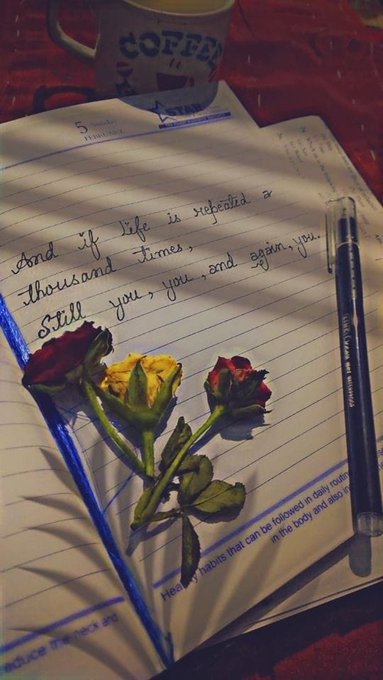 COFFEE
5
FEBRUARY
STAR
And if life is repeated a
thousand times,
Still you, you, and again, you.
Healthy habits that can be followed in daily routine
in the body and also in
educe the neck and